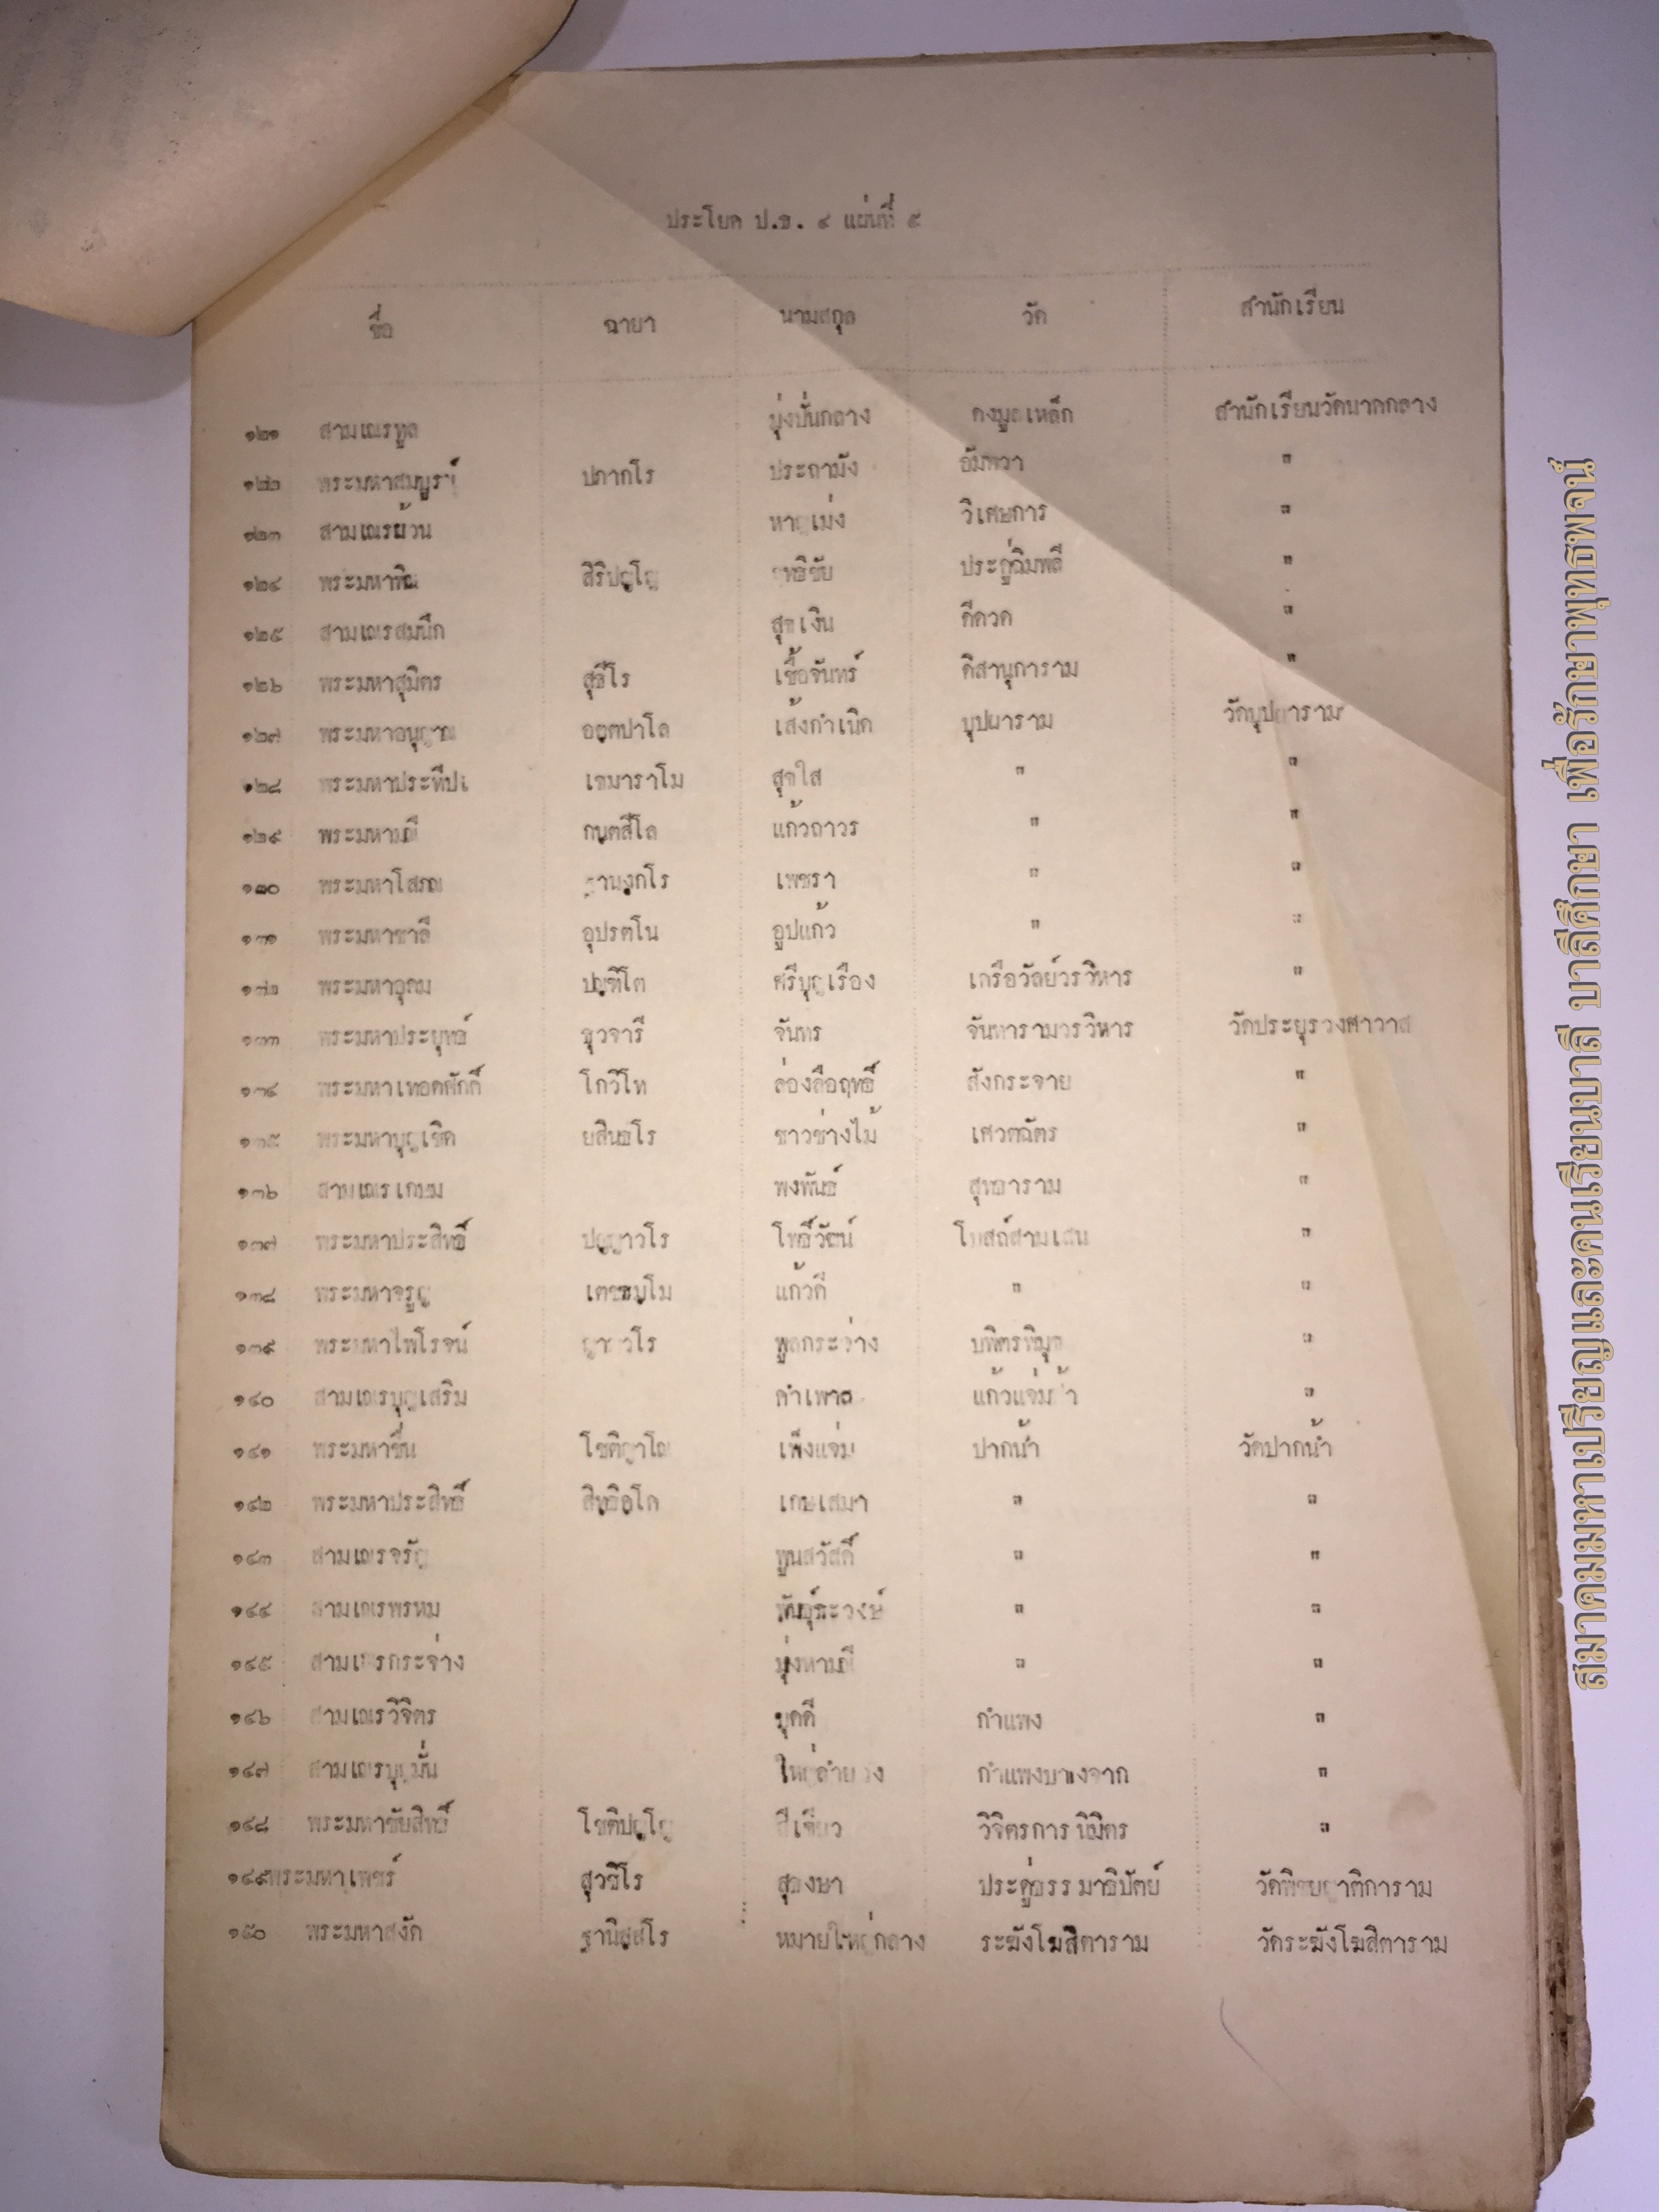 ประโยค ป.ธ. ๔ แผ่นที่ ๕
ชื่อ ฉายา นามสกุล วัด สำนักเรียน
๑๒๑ สามเณรทูล มุ่งปั่นกลาง ดงมูลเหล็ก สำนักเรียนวัดนาคกลาง
๑๒๒ พระมหาสมบูรณ์ ปภากโร ประถามัง อัมพวา "
๑๒๓ สามเณรย้วน วิเศษการ "
๑๒๔ พระมหาพิณ สิริปญฺโญ ฤทธิชัย ประดู่ฉิมพลี "
๑๒๕ สามเณรสมนึก สุขเงิน ดีดวด "
๑๒๖ พระมหาสุมิตร สุธีโร เชื้อจันทร์ ดิสานุการาม "
๑๒๗ พระมหาอนุญาณ อตฺตปาโล เส้งกำเนิด บุปผาราม วัดบุปผาราม
๑๒๘ พระมหาประทีป เขมาราโม สุขใส " "
๑๒๙ พระมหามณี กนฺตสีโล แก้วถาวร " "
๑๓๐ พระมหาโสภณ ฐานงฺกโร เพชรา " "
๑๓๑ พระมหาชาลี อุปรตโน อูปแก้ว " "
๑๓๒ พระมหาอุดม ปณฺฑิโต ศรีบุญเรือง เครือวัลย์วรวิหาร "
๑๓๓ พระมหาประยุทธ์ ธุวจารี จันทร จันทารามวรวิหาร วัดประยุรวงศาวาส
๑๓๔ พระมหาเทอดศักดิ์ โกวิโท ล่องลือฤทธิ์ สังกระจาย "
๑๓๕ พระมหาบุญเชิด ยสินฺธโร ชาวช่างไม้ เศวตฉัตร "
๑๓๖ สามเณรเกษม พงพันธ์ สุทธาราม "
๑๓๗ พระมหาประสิทธิ์ ปญฺญาวโร โพธิ์วัฒน์ โบสถ์สามเสน "
๑๓๘ พระมหาจรูญ เตชธมฺโม แก้วดี " "
๑๓๙ พระมหาไพโรจน์ ญาณวโร พูลกระจ่าง บพิตรพิมุข "
๑๔๐ สามเณรบุญเสริม แก้วแจ่มฟ้า "
๑๔๑ พระมหาชื่น โชติญาโณ เพ็งแจ่ม ปากน้ำ วัดปากน้ำ
๑๔๒ พระมหาประสิทธิ์ เกษเสมา " "
๑๔๓ สามเณรจรัญ พูนสวัสดิ์ " "
๑๔๔ สามเณรพรหม " "
๑๔๕ สามเณรกระจ่าง มุ่งหามณี " "
๑๔๖ สามเณรวิจิตร มุคดี กำแพง "
๑๔๗ สามเณรบุญมั่น กำแพงบางจาก "
๑๔๘ พระมหาชัยสิทธิ์ โชติปญฺโญ สีเขียว วิจิตรการนิมิตร "
๑๔๙ พระมหาเพชร์ สุวชิโร สุธงษา ประดู่ธรรมาธิปัตย์ วัดพิชยญาติการาม
๑๕๐ พระมหาสงัด ฐานิสฺสโร หมายใหญ่กลาง ระฆังโฆสิตาราม วัดระฆังโฆสิตาราม
สมาคมมหาเปรียญและคนเรียนบาลี บาลีศึกษา เพื่อรักษาพุทธพจน์